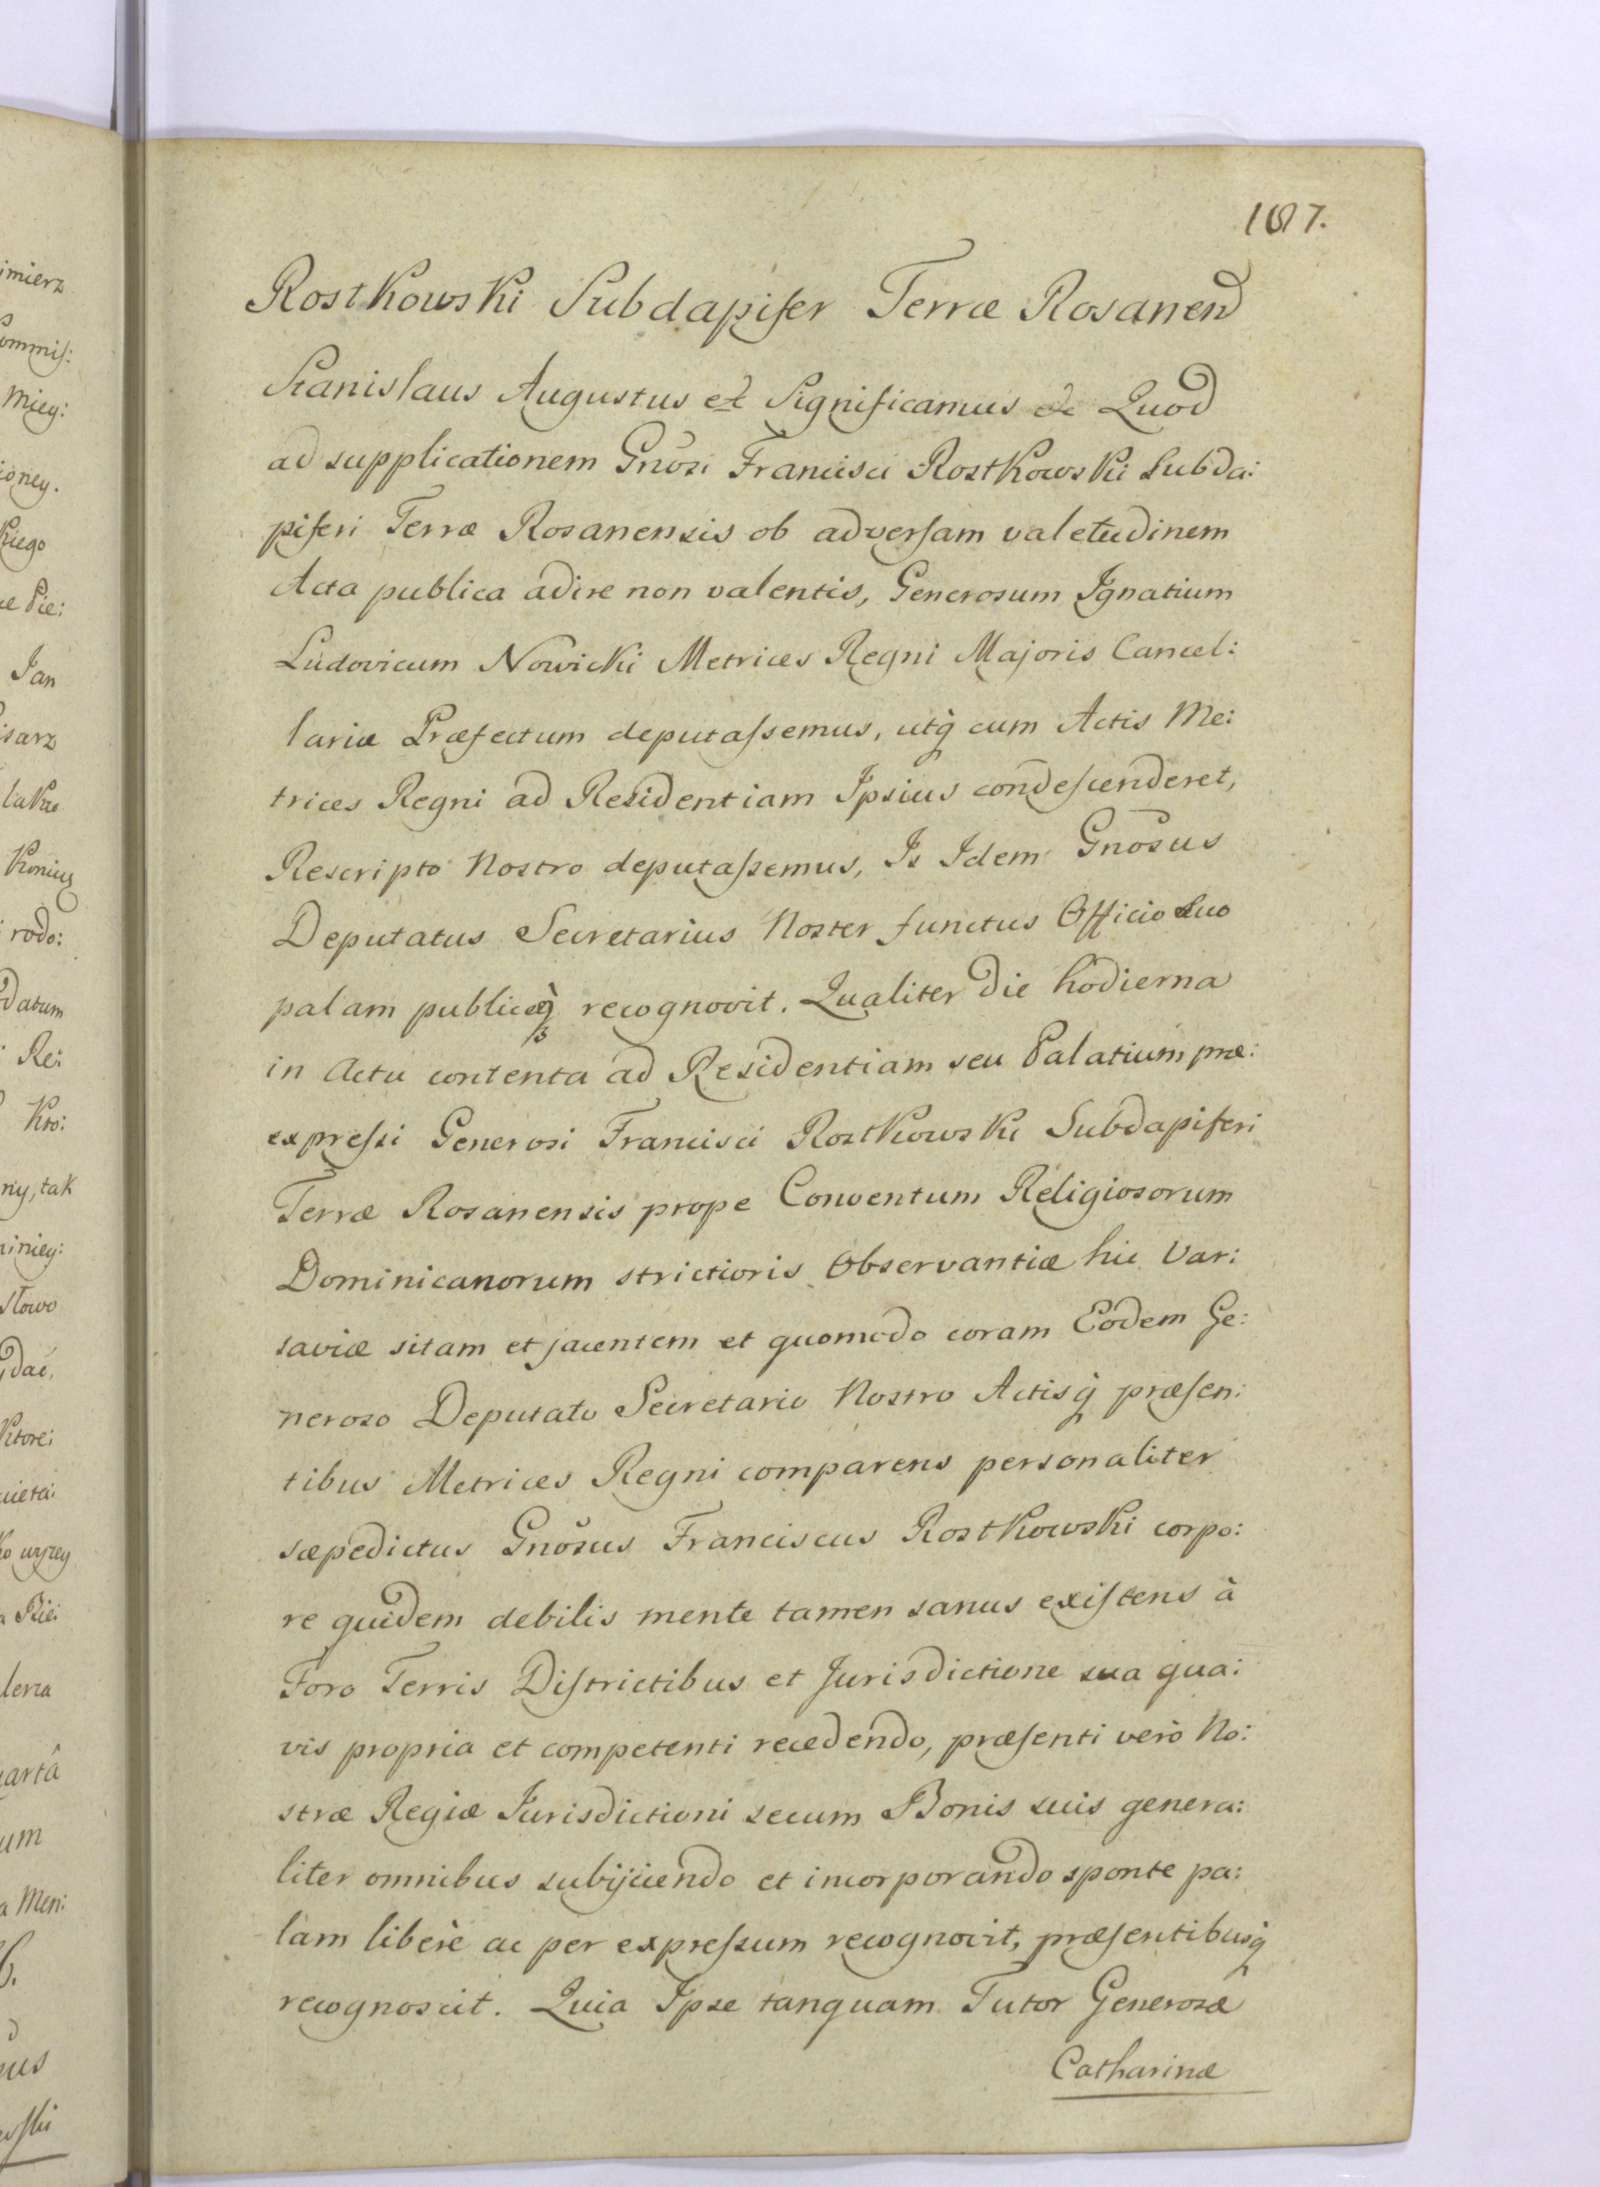 187.
Rostkowski Subdapifer Terræ Rosanen
Stanislaus Augustus et Significamus &c Quod
ad supplicationem Gnosi Francisci Rostkowski Subda:
piferi Terræ Rosanensis ob adversam valetudinem
Acta publica adire non valentis, Generosum Ignatium
Ludovicum Nowicki Metrices Regni Majoris Cancel:
lariæ Præfectum deputassemus, utq̀ cum Actis Me:
trices Regni ad Residentiam Ipsius condescenderet,
Rescripto Nostro deputassemus, Is Idem Gnosus
Deputatus Secretarius Noster functus Officio Suo
palam publiceq̀ recognovit. Qualiter die hodierna
in Actu contenta ad Residentiam seu Palatium præ:
expressi Generosi Francisci Rostkowski Subdapiferi
Terræ Rosanensis prope Conventum Religiosorum
Dominicanorum strictioris Observantiæ hic Var:
saviæ sitam et jacentem et quomodo coram Eodem Ge:
neroso Deputato Secretario Nostro Actisq̀ præsen:
tibus Metrices Regni comparens personaliter
sæpedictus Gnosus Franciscus Rostkowski corpo:
re quidem debilis mente tamen sanus existens à
Foro Terris Districtibus et Jurisdictione sua qua:
vis propria et competenti recedendo, præsenti verò No:
stræ Regiæ Jurisdictioni secum Bonis suis genera:
liter omnibus subijciendo et incorporando sponte pa:
lam liberè ac per expressum recognovit, præsentibusq̀
recognoscit. Quia Ipse tanquam Tutor Generosæ
Catharinæ